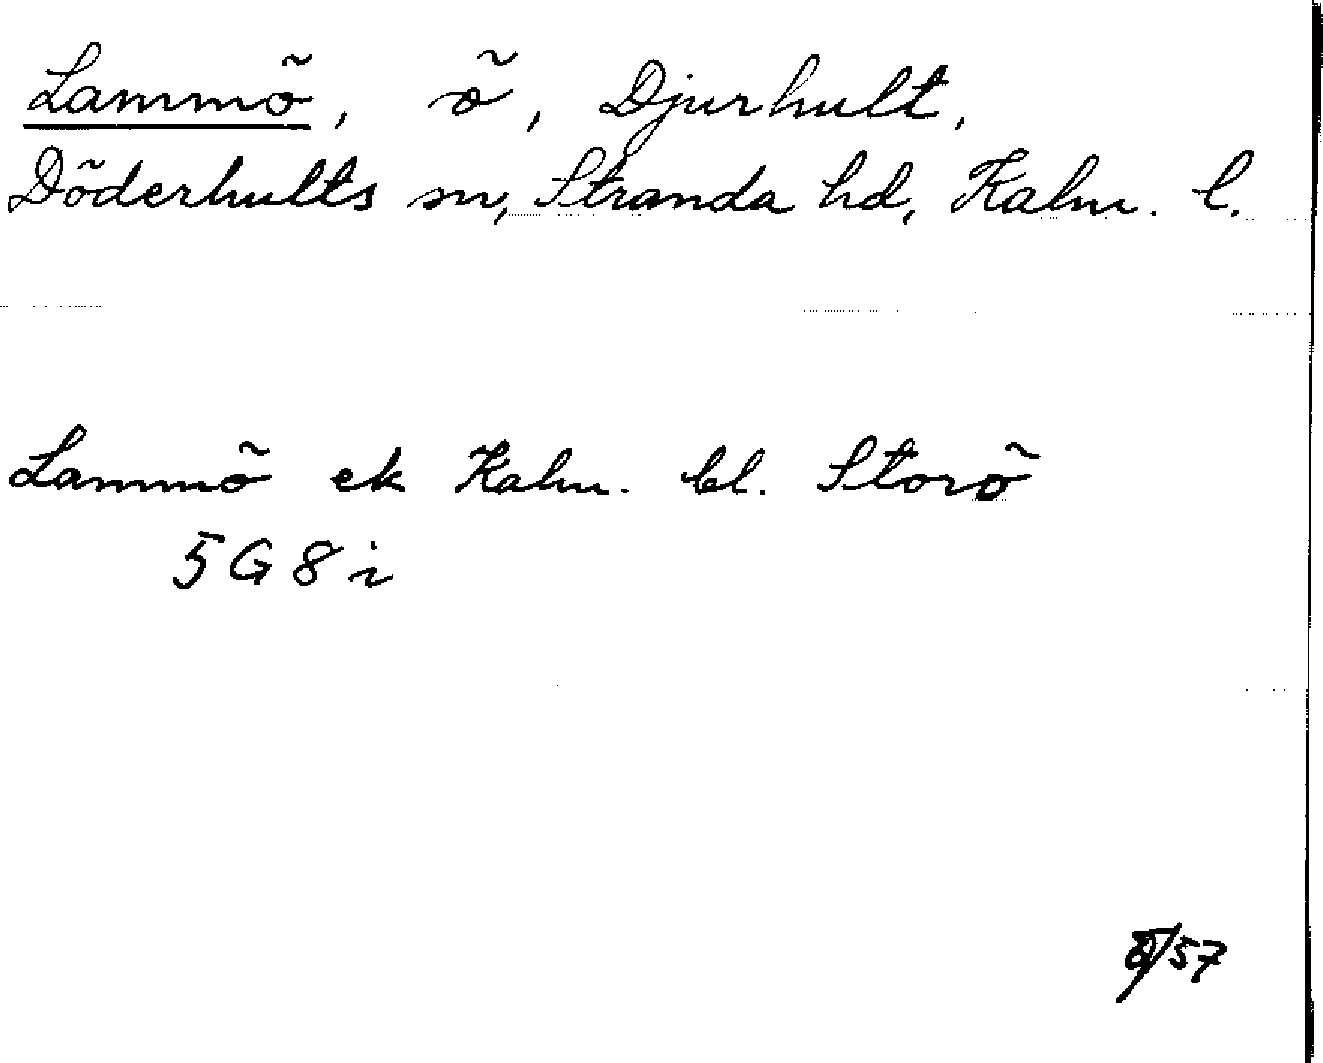 Lammö, ö, Djurhult,
Döderhults sn, Stranda hd, Kalm. l.
Lammö ek Kalm. bl. Storö
5G8i
/57